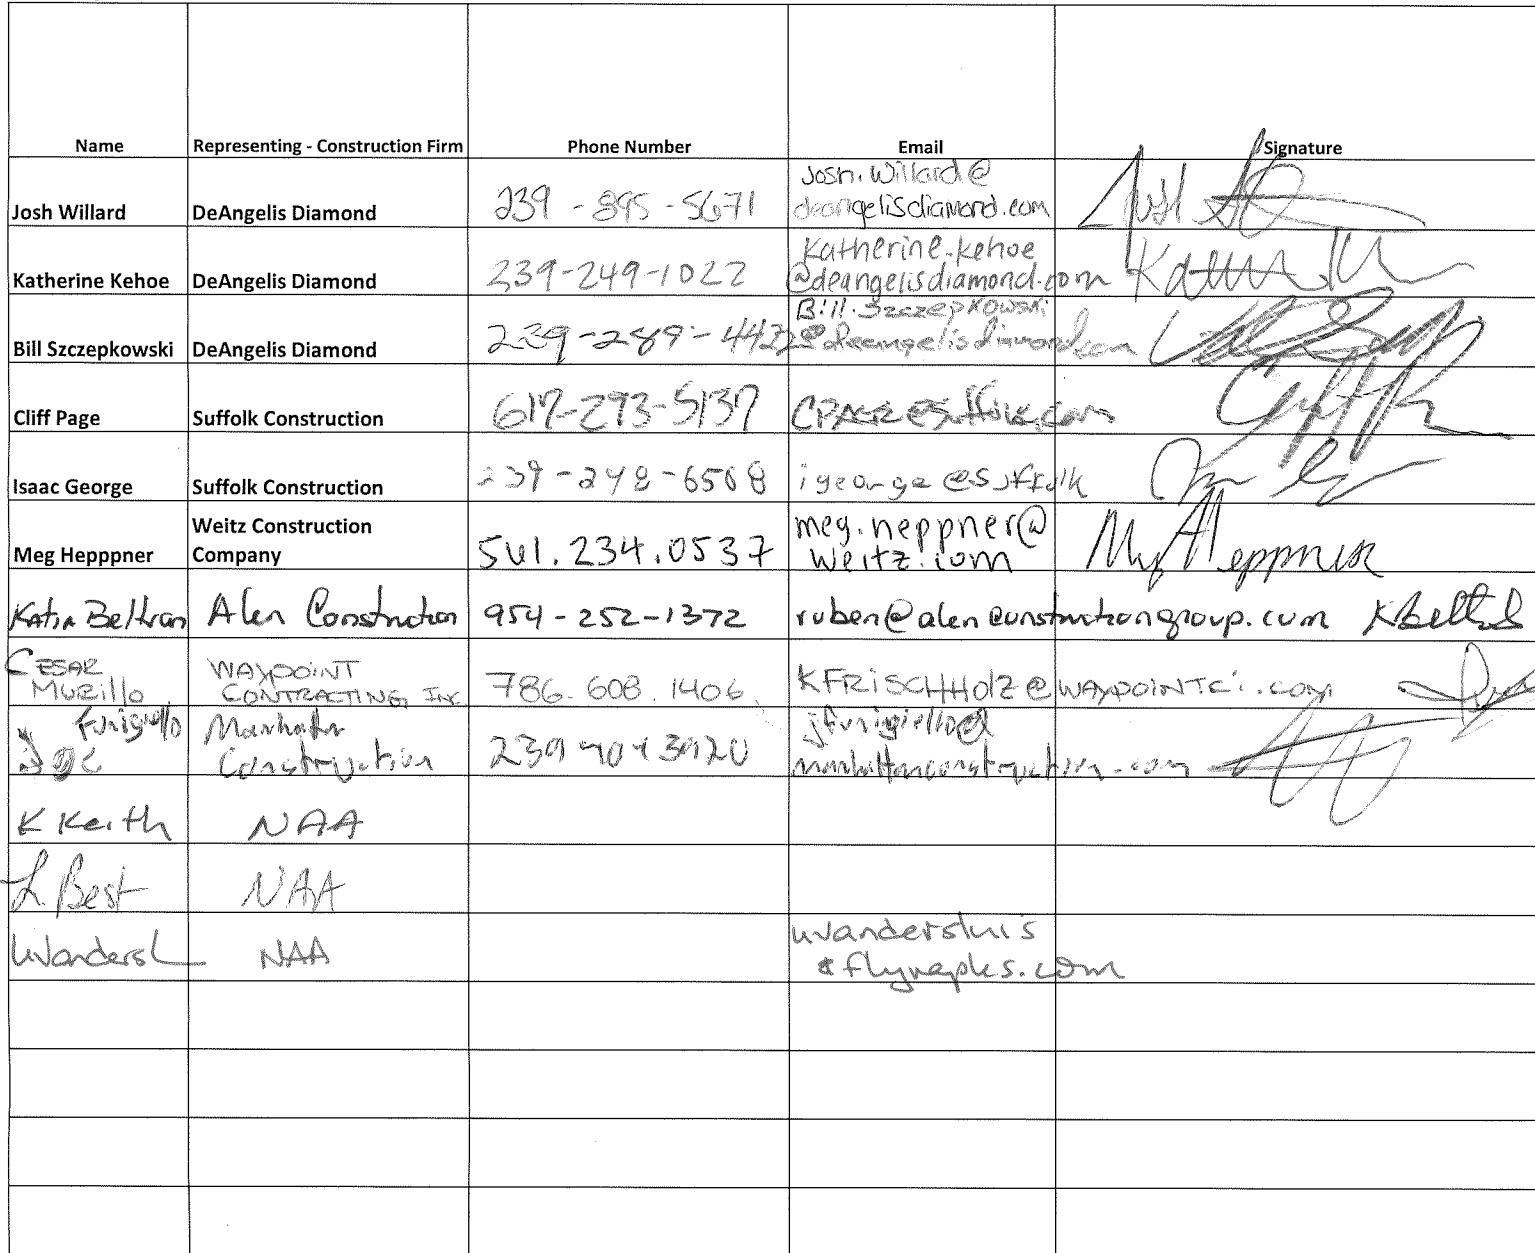 Name Representing - Construction Firm Phone Number Email Signature
Josh Willard DeAngelis Diamond 239-895-5671 Josh.Willard@
deangelisdiamond.com
Katherine Kehoe DeAngelis Diamond 239-249-1022 Katherine.kehoe
@deangelisdiamond.com
Bill Szczepkowski DeAngelis Diamond 239-289-4422 Bill.Szczepkowski
@deangelisdiamond.com
Cliff Page Suffolk Construction 617-293-5137 CPAGE@Suffolk.com
Isaac George Suffolk Construction 239-248-6508 igeorge@Suffolk
Meg Hepppner Weitz Construction
Company 561.234.0537 meg.heppner@
weitz.com Meg Heppner
Katia Beltran Alen Construction 954-252-1372 ruben@alenconstructiongroup.com KBeltran
CESAR
MURillo WAYPOINT
CONTRACTING, INC 786.608.1406 KFRISCHHOLZ@WAYPOINTCI.COM
Joe Furigiello Manhattan
Construction jfurigiello@
manhattanconstruction.com
K Keith NAA
L. Best NAA
NAA wvandersluis
@flynaples.com